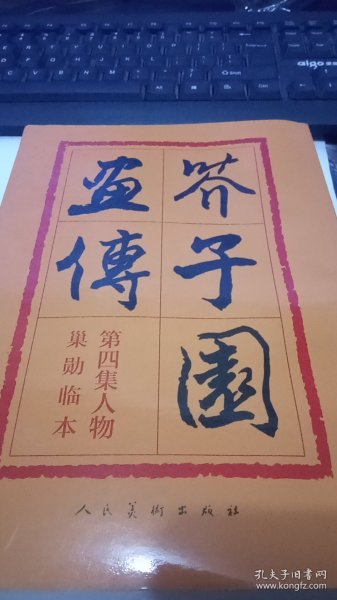 芥子園
畫傳
第四集人物
巢勋临本
人民美術出版社
aigo
孔夫子旧书网
www.kongfz.com